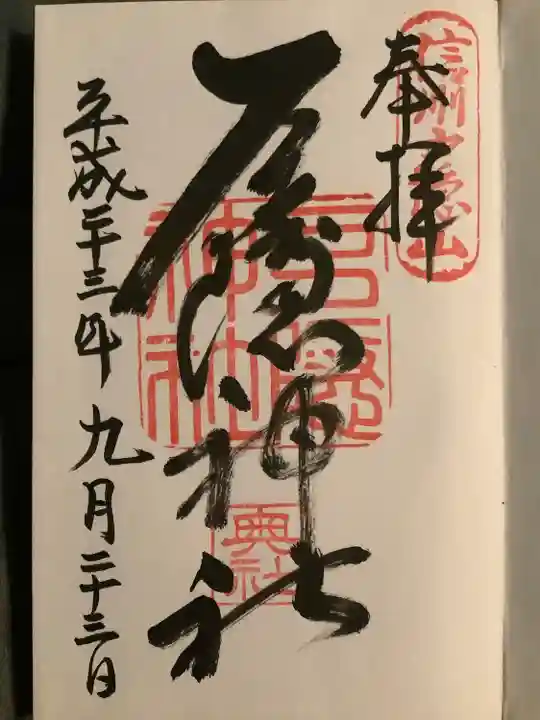 信州戸隠山
奉拝
戸隠神社
戸隠神社
奥社
平成二十三年九月二十三日